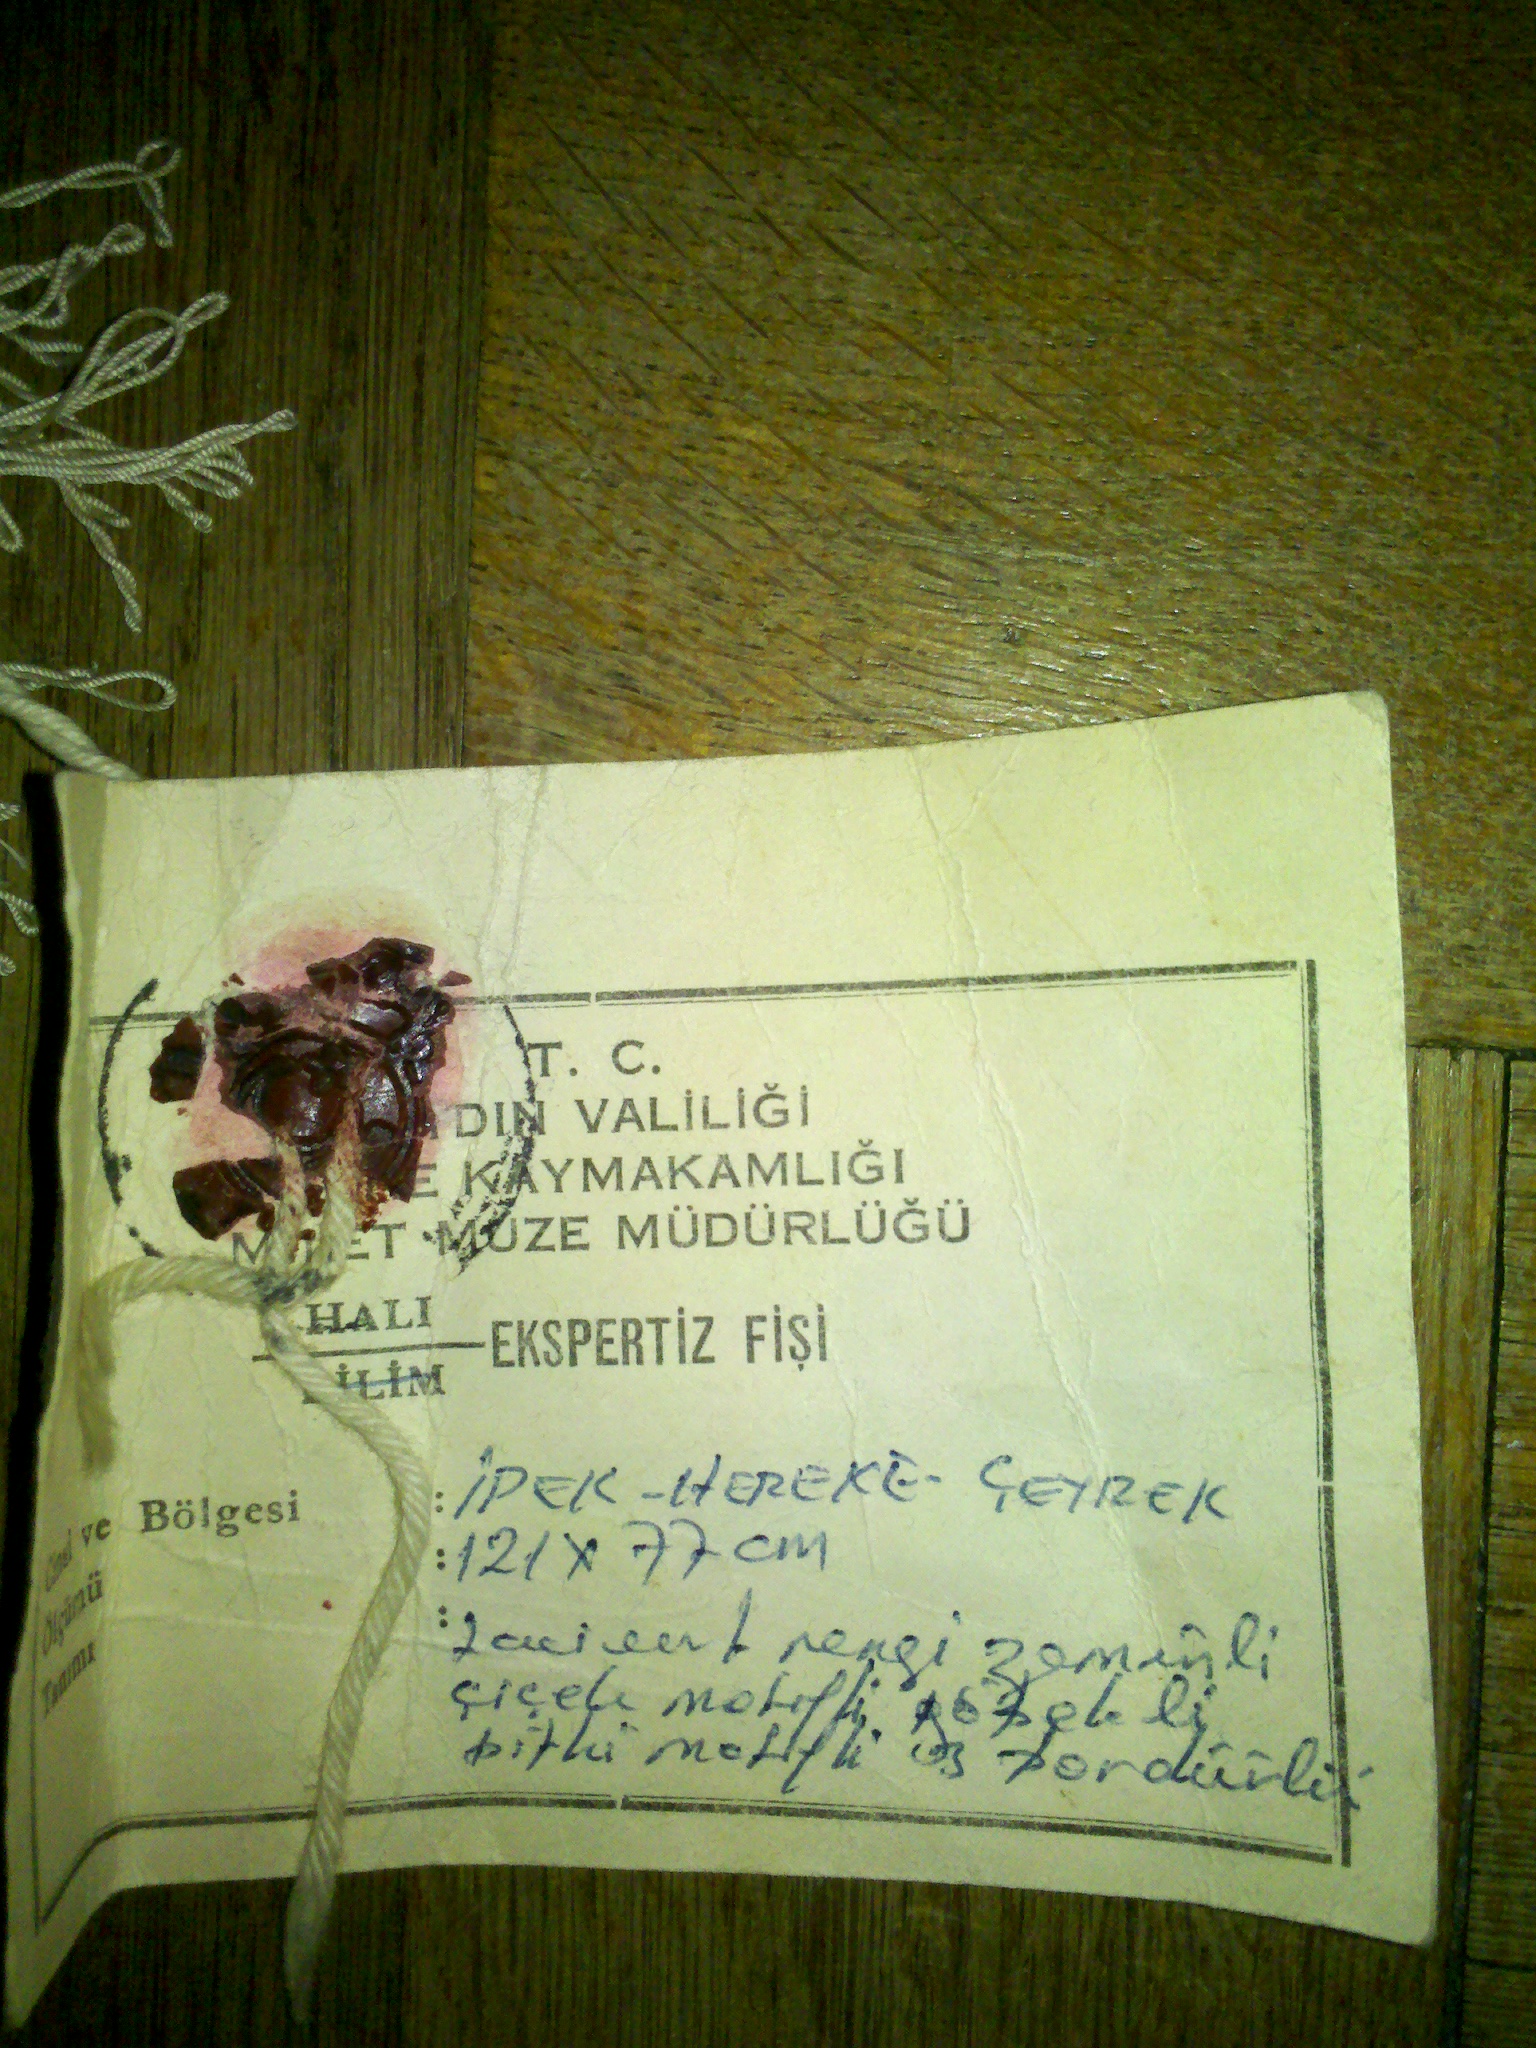 T. C.
AYDIN VALİLİĞİ
KAYMAKAMLIĞI
MİLET MÜZE MÜDÜRLÜĞÜ
HALI
KİLİM
EKSPERTİZ FİŞİ
Cinsi ve Bölgesi : İPEK - HEREKE - ÇEYREK
Ölçümü : 121 x 77 cm
Tanımı : Lacivert rengi zeminli
çiçek motifli göbekli
bitki motifli üç bordürlü